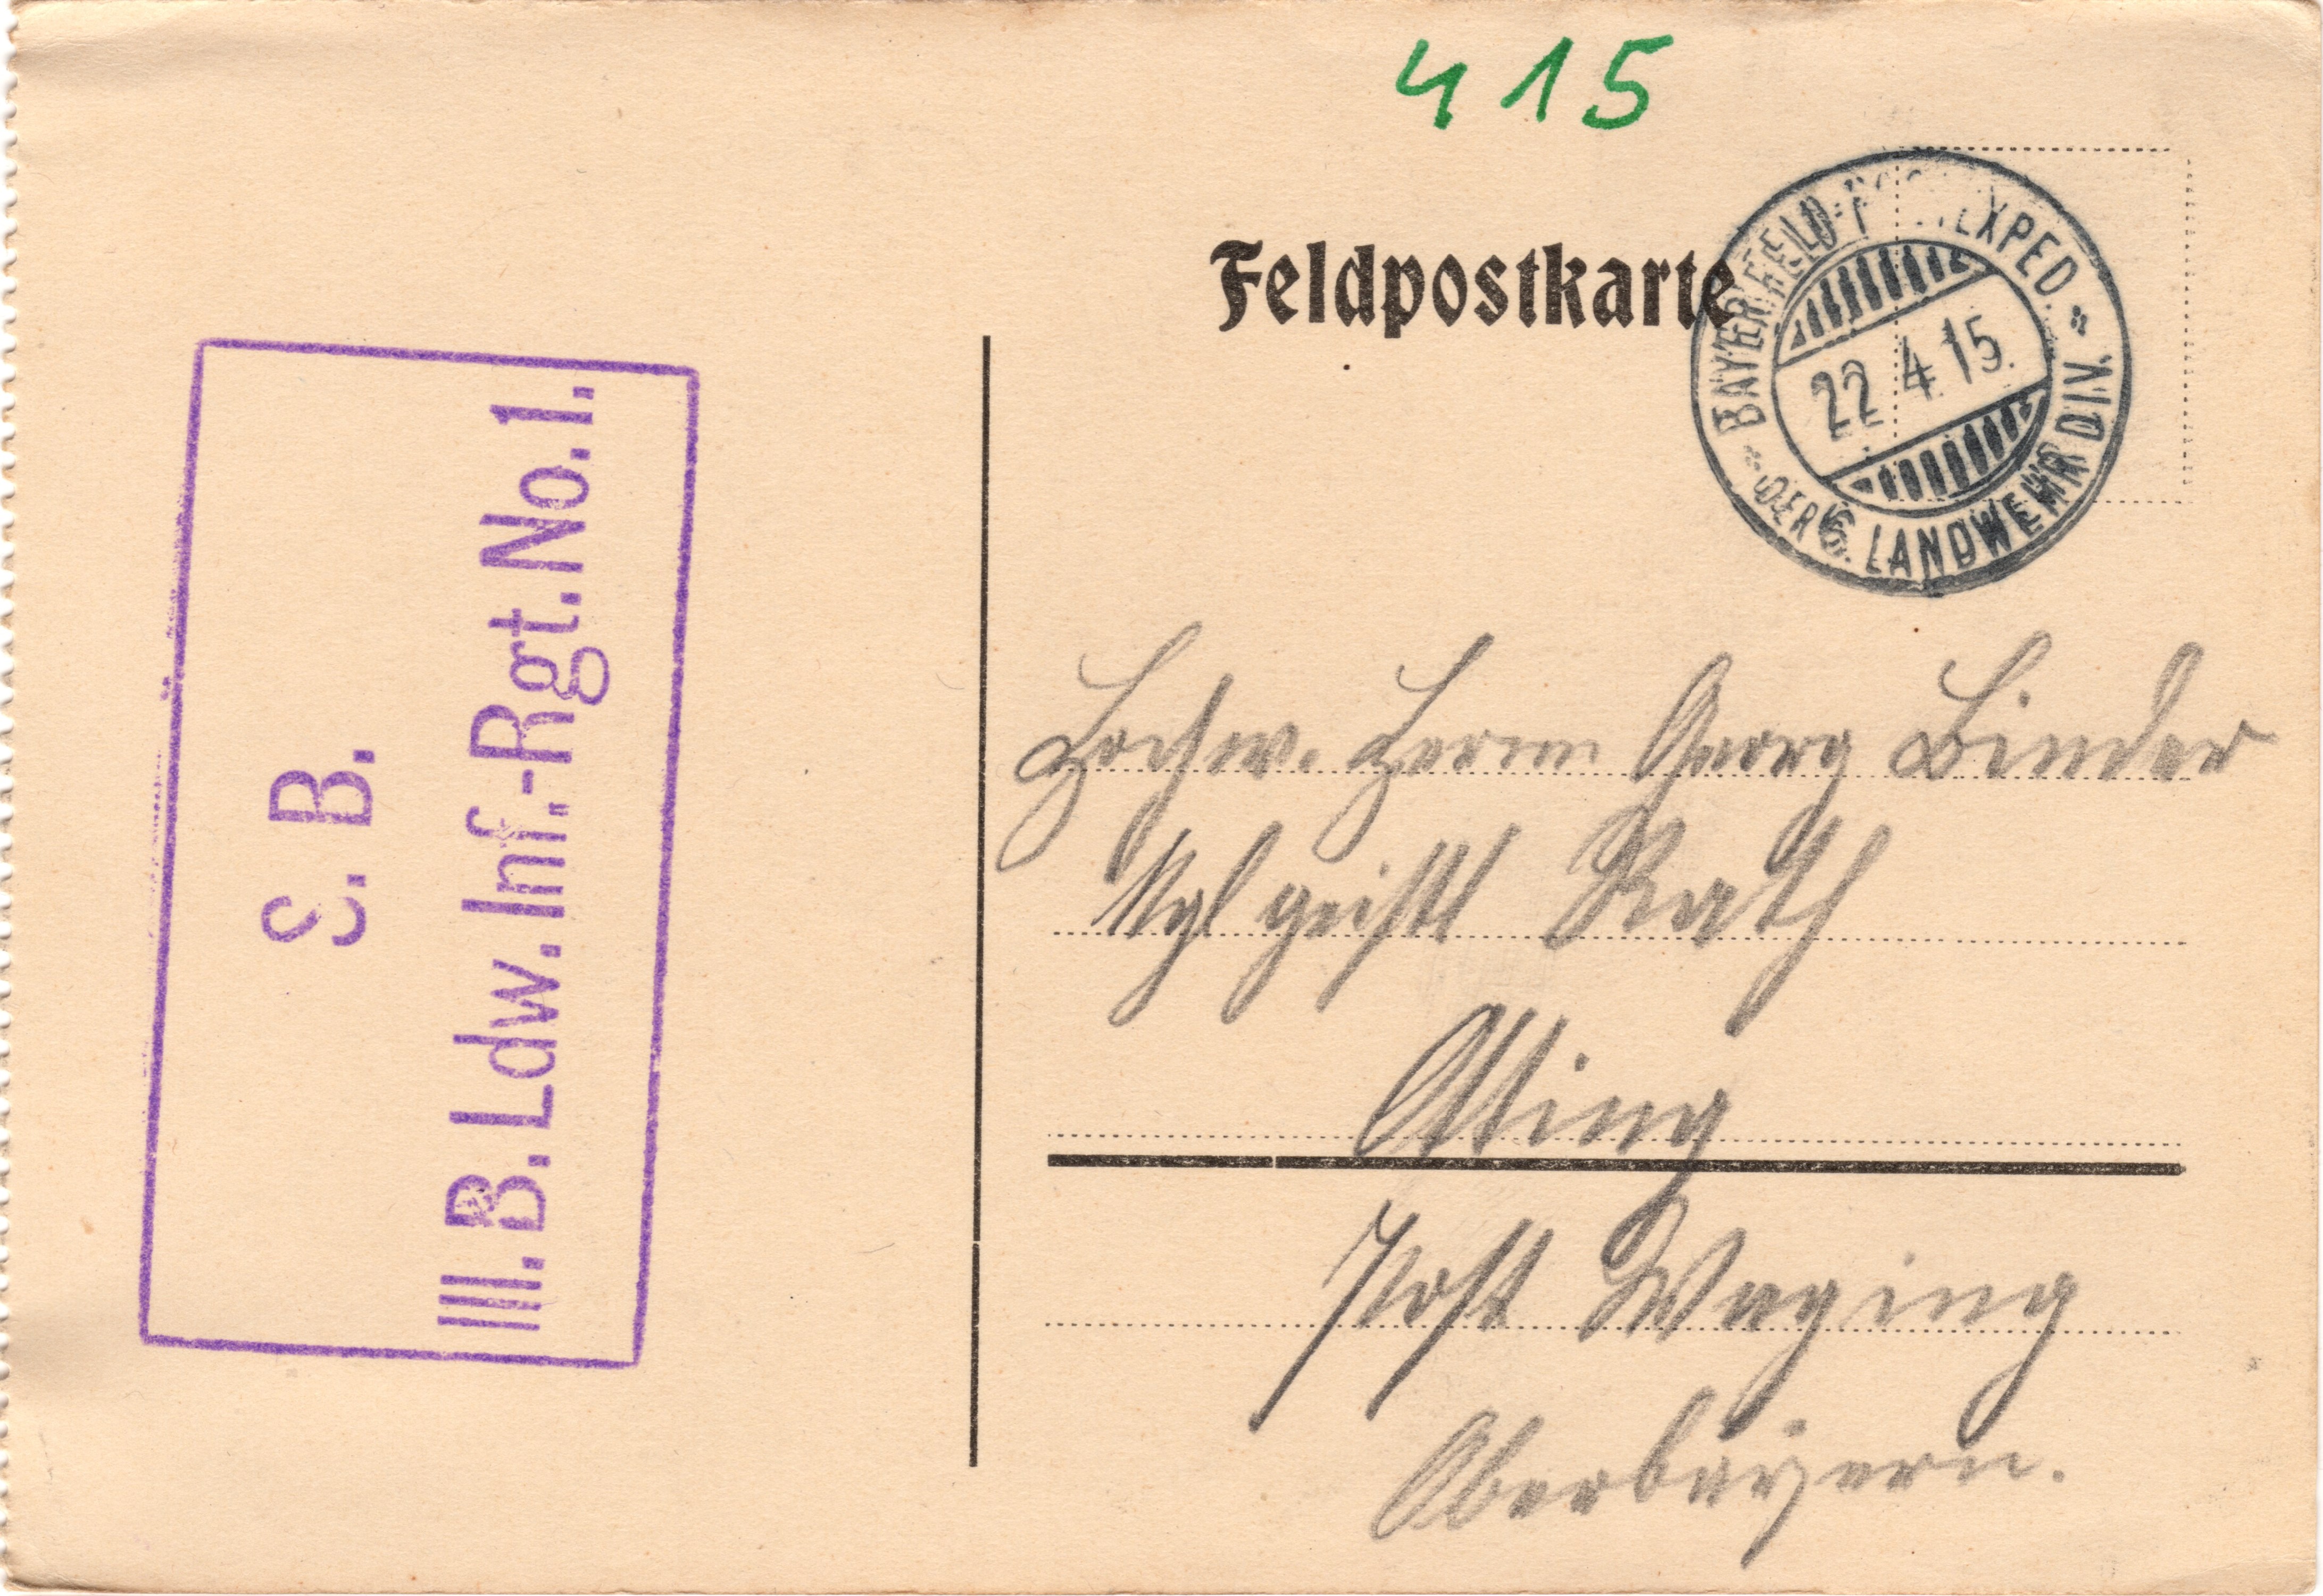 415
Feldpostkarte
BAYER. FELD-P EXPED.
22 4 15.
DER 6. LANDWEHR DIV.
S. B.
III. B. Ldw. Inf.-Rgt. No. 1.
Hochw. Herrn Georg Binder
Kgl geistl Rath
Otting
Post Waging
Oberbayern.